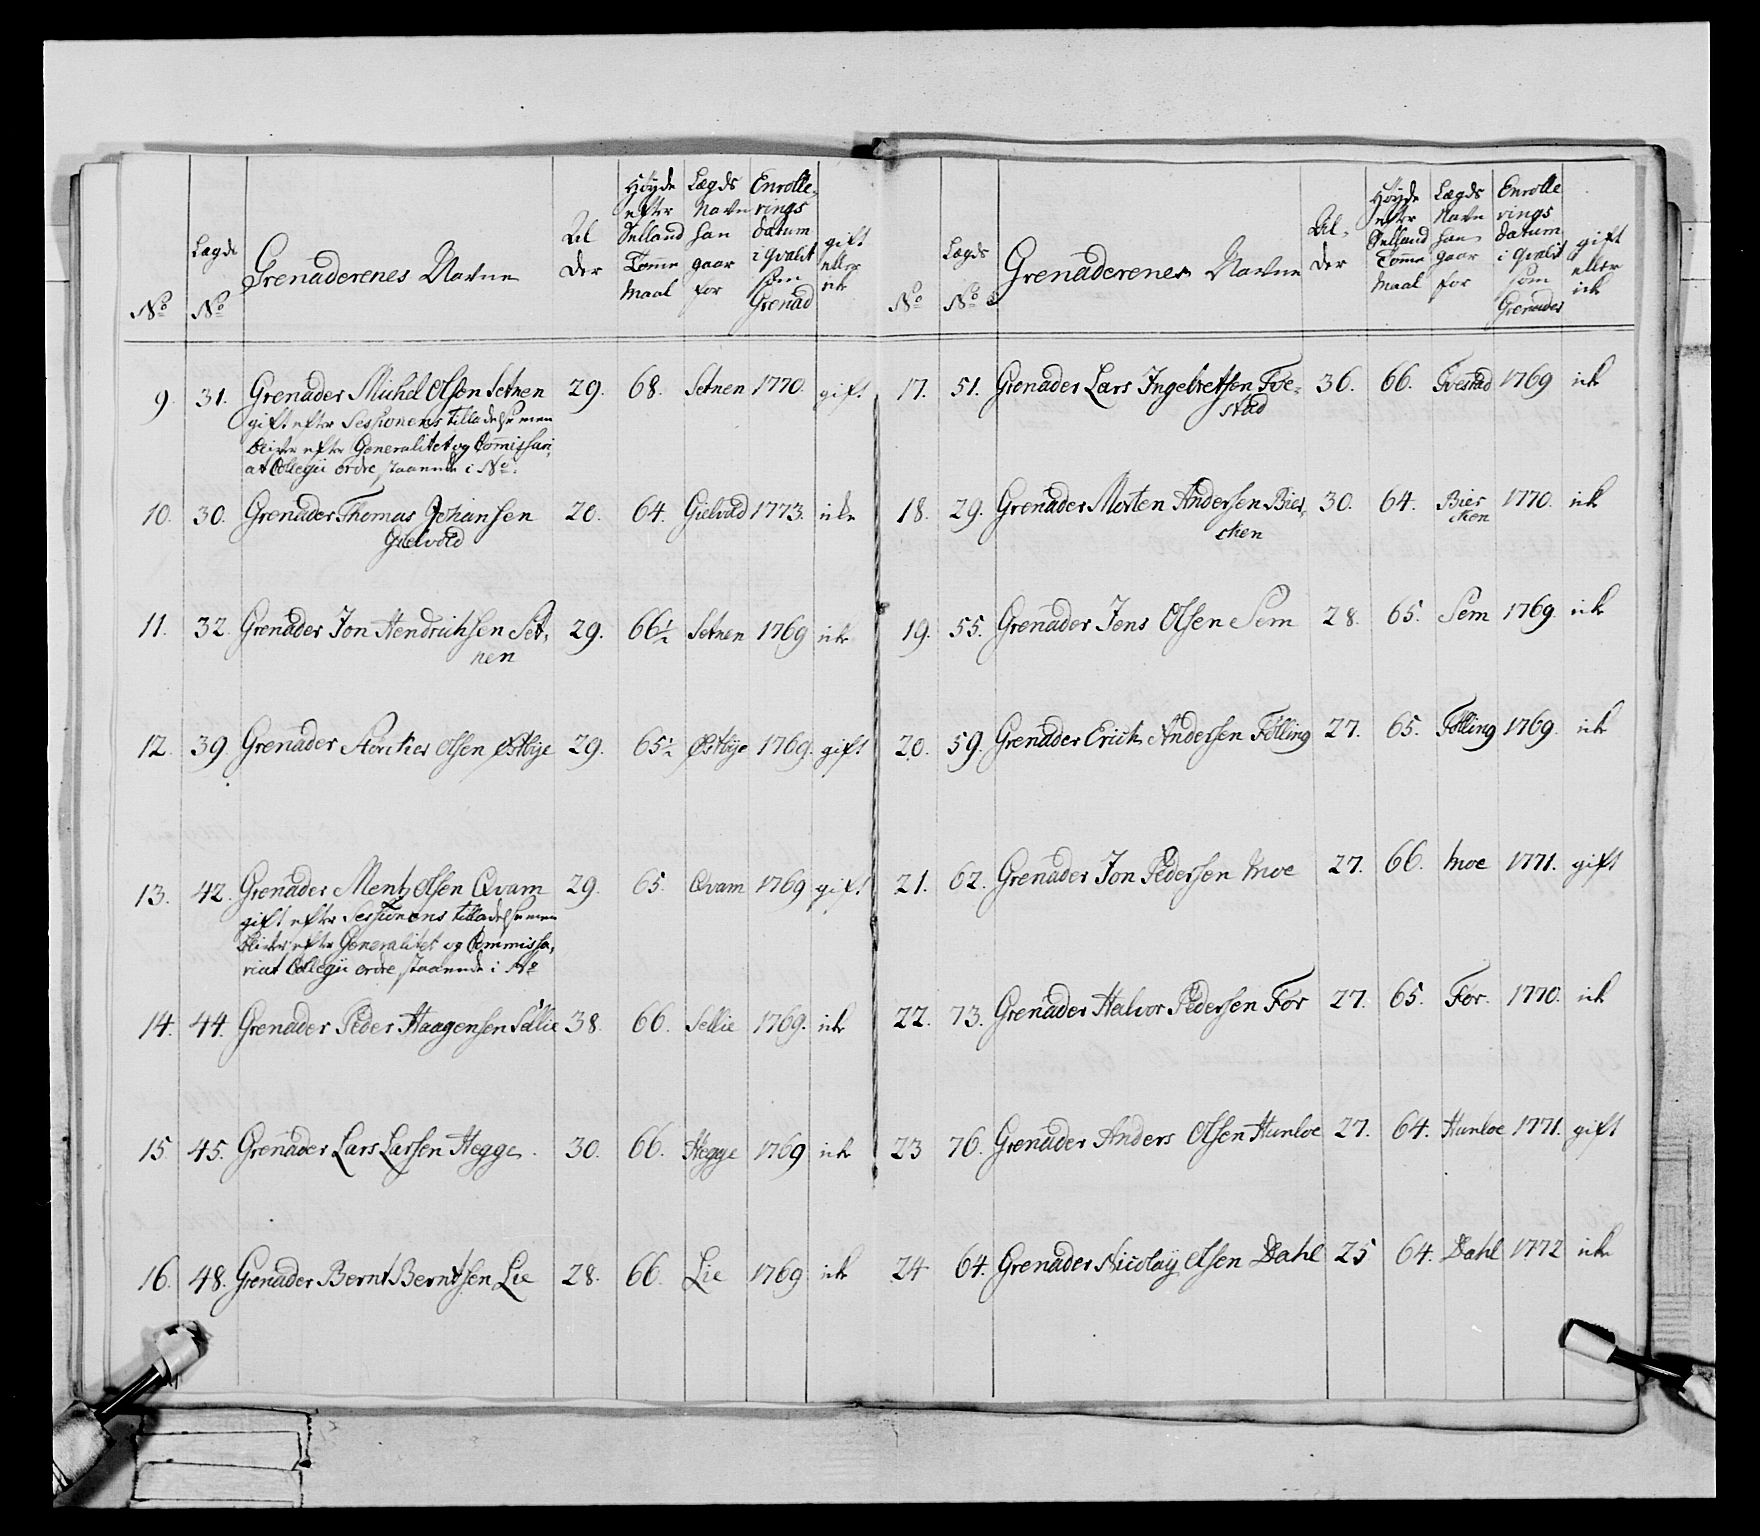 No
Lægds
No
Grenaderenes Navne
Al
der
Høyde
efter
Selland
Tomme
Maal
Lægds
Navn
han
gaar
for
Enrolle-
rings
datum
i qvalit
som
Grenad
gift
eller
ik
9. 31. Grenader Michel Olsen Setnen 29. 68. Setnen 1770. gift
gift efter Sessionens tilladelse men
bliver efter Generalitet og Commissari,
at Collegii ordre, staaende i No.
10. 30. Grenader Thomas Johansen 20. 64. Gielvold 1773. icke
Gielvold
11. 32. Grenader Jon Hendrichsen Set, 29. 66½ Setnen 1769 ick
nen
12. 39. Grenader Olsen Østbye 29. 65½ Østbye 1769. gift
13. 42. Grenader Mentz Olsen Qvam 29. 65. Qvam 1769 gift
gift efter Sessionens tilladelse men
bliver efter Generalitet og Commissa,
riat Collegii ordre, staaende i No
14. 44. Grenader Peder Haagensen Sellie 38. 66. Sellie 1769. ick
15 45. Grenader Lars Larssen Hegge. 30. 66. Hegge 1769 ick
16. 48. Grenader Bernt Berntsen Lie 28. 66. Lie 1769 ick
No
Lægds
No
Grenaderenes Navne
Al-
der
Høyde
efter
Selland
Tomme
Maal
Lægds
Navn
han
gaar
for
Enrolle
rings
datum
i qvalit
som
Grenader
gift
eller
ick
17. 51. Grenader Lars Ingebretsen Toe- 36. 66. 1769 ick
stad
18. 29. Grenader Morten Andersen Bier, 30. 64. Bier 1770. ick
chen
chen
19. 55. Grenader Jens Olsen Sem 28. 65. Sem 1769. ick
20. 59. Grenader Erich Andersen Følling 27. 65. Følling 1769. ick
21. 62. Grenader Jon Pedersen Moe 27. 66. Moe 1771. gift
22. 73. Grenader Halvor Pedersen For 27. 65. For. 1770. ick
23 76. Grenader Anders Olsen Hunloe 27. 64. Hunloe 1771. gift
24 64. Grenader Nicolaÿ Olsen Dahl 25 64. Dahl 1772 ick